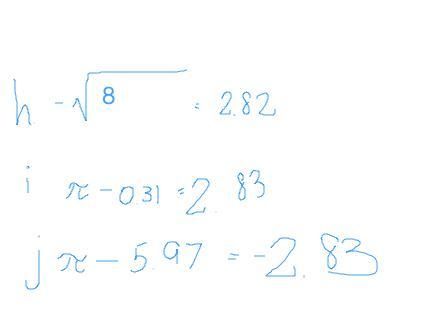 h. -√8 = 2.82
i π - 031 = 2.83
j π - 5.97 = -2.83